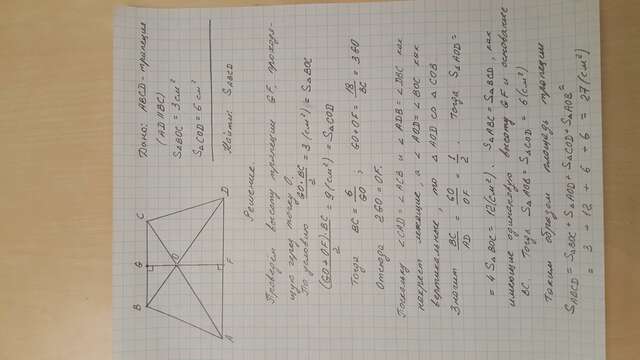 B G C
O
A F D
Дано: ABCD – трапеция
(AD ∥ BC)
S△BOC = 3 см²
S△COD = 6 см²
Найти: S ABCD
Решение.
Проведем высоту трапеции GF, проходя-
щую через точку O.
По условию GO·BC/2 = 3 (см²) = S△BOC
(GO + OF)·BC/2 = 9 (см²) = S△BCD
Тогда BC = 6/GO; GO + OF = 18/BC = 3GO
Отсюда 2GO = OF.
Поскольку ∠CAD = ∠ACB и ∠ADB = ∠DBC как
накрест лежащие, а ∠AOD = ∠BOC как
вертикальные, то △AOD ∾ △COB
Значит BC/AD = GO/OF = 1/2. Тогда S△AOD =
= 4 S△BOC = 12 (см²). S△ABC = S△BCD, как
имеющие одинаковую высоту GF и основание
BC. Тогда S△AOB = S△COD = 6 (см²)
Таким образом площадь трапеции
S ABCD = S△BOC + S△AOD + S△COD + S△AOB =
= 3 + 12 + 6 + 6 = 27 (см²)